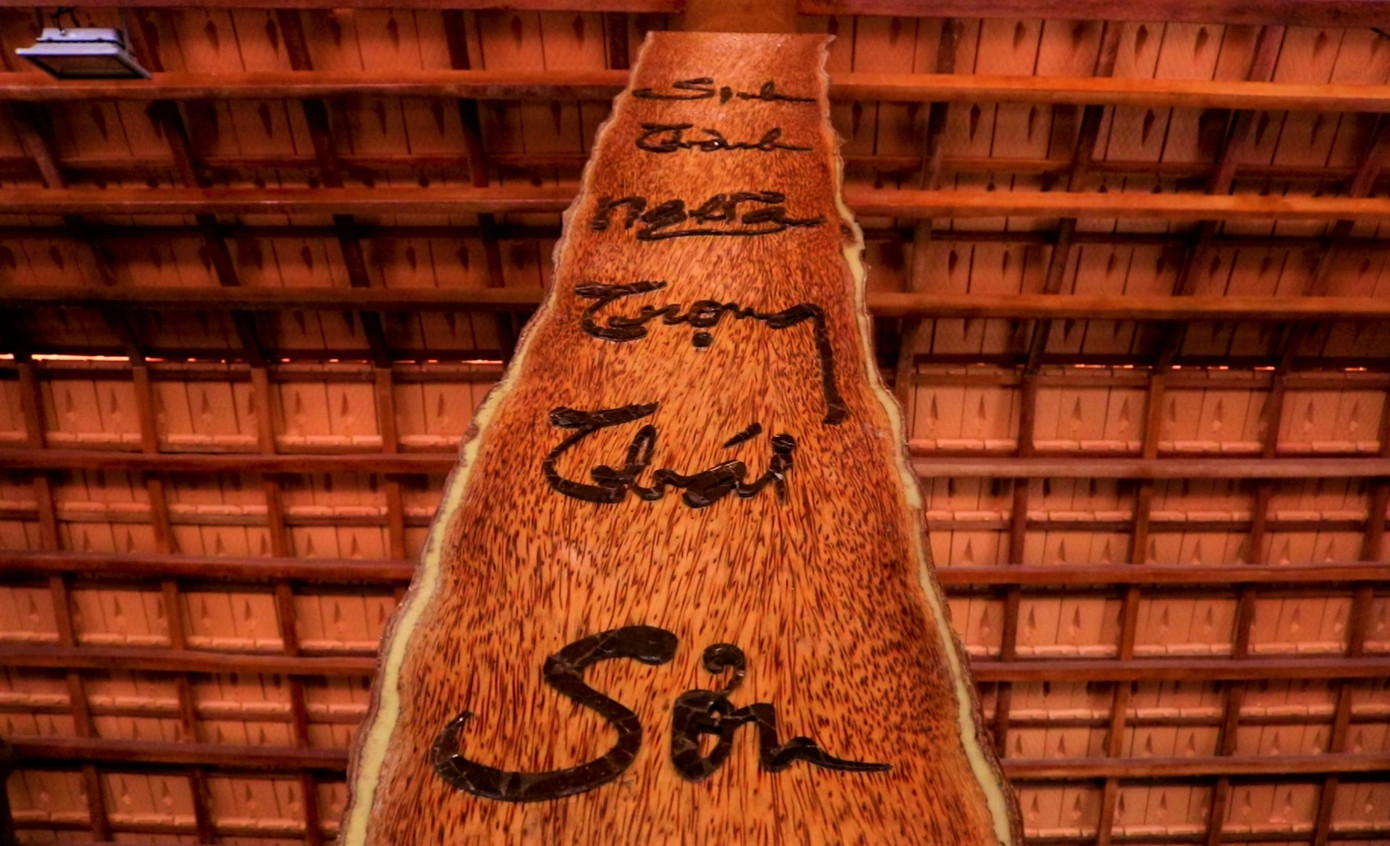 Sinh
Thành
Nghĩa
Trọng
Thái
Sơn